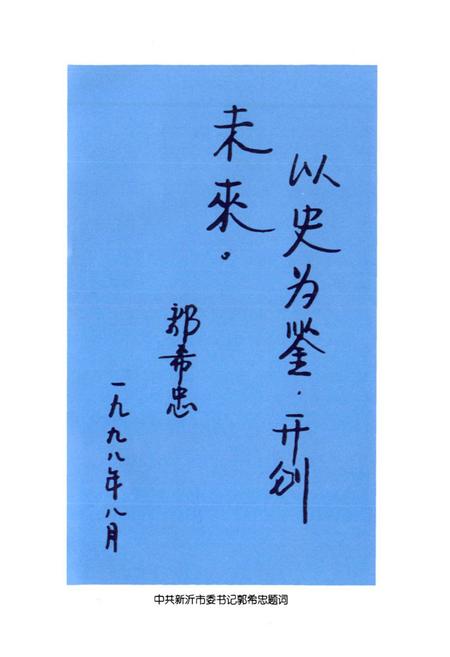 以史为鉴.开创
未來。
郭希忠
一九九八年八月
中共新沂市委书记郭希忠题词